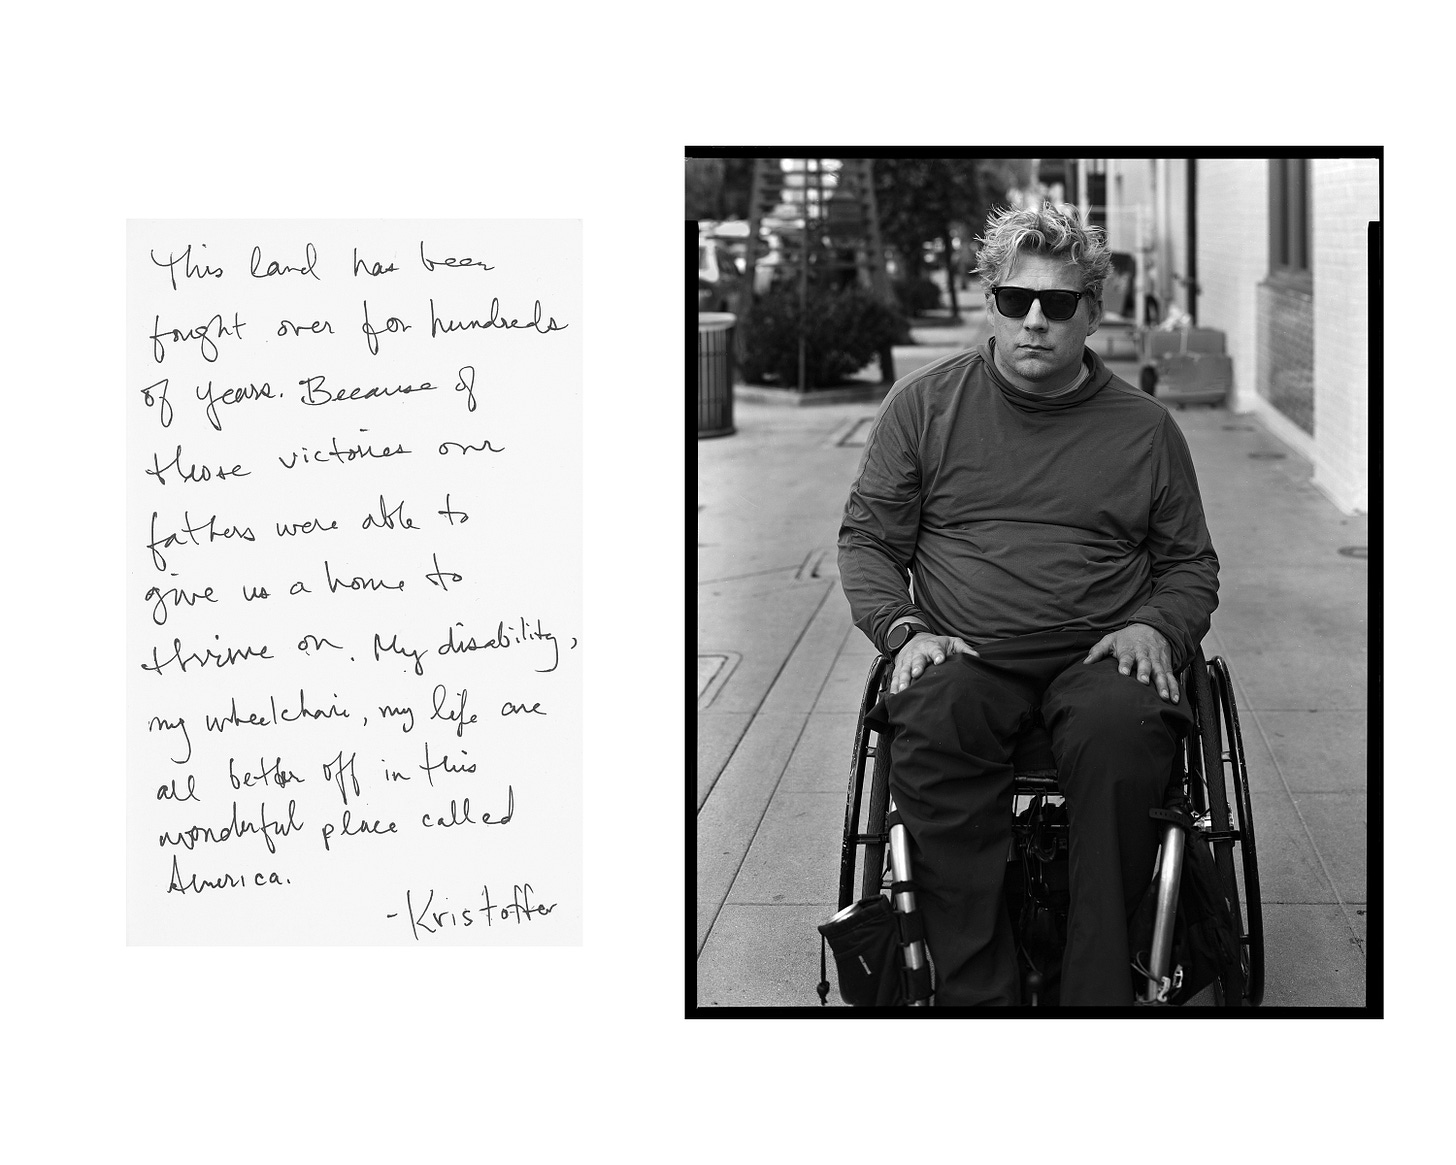 This land has been
fought over for hundreds
of years. Because of
those victories our
fathers were able to
give us a home to
thrive on. My disability,
my wheelchair, my life are
all better off in this
wonderful place called
America.
-Kristoffer